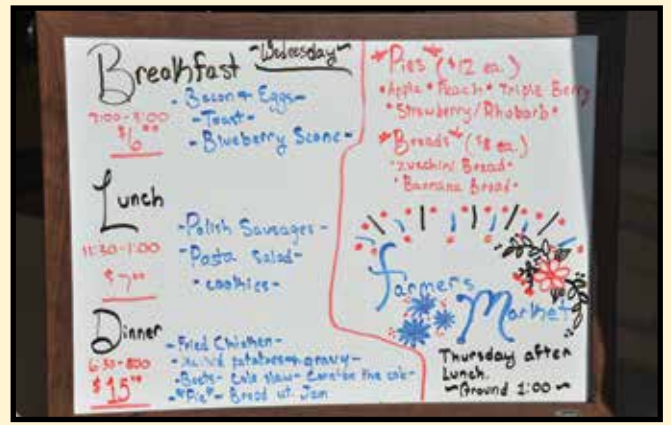 Breakfast ~Wednesday~
- Bacon + Eggs -
7:00 - 8:00
- Toast -
$6.00
- Blueberry Scone -
Lunch
- Polish Sausages -
11:30 - 1:00
- Pasta Salad -
$7.00
- cookies -
Dinner
- Fried Chicken -
6:30 - 8:00
potatoes + gravy -
- Beets - Cole slaw - Corn on the cob -
$15.00
- "Pie" - Bread w. Jam
*Pies* ($12 ea.)
• Apple • Peach • Triple Berry
• Strawberry/Rhubarb •
*Breads* ($8 ea.)
• zucchini Bread •
• Bannana Bread •
Farmers
Market
Thursday after
Lunch.
~Around 1:00~